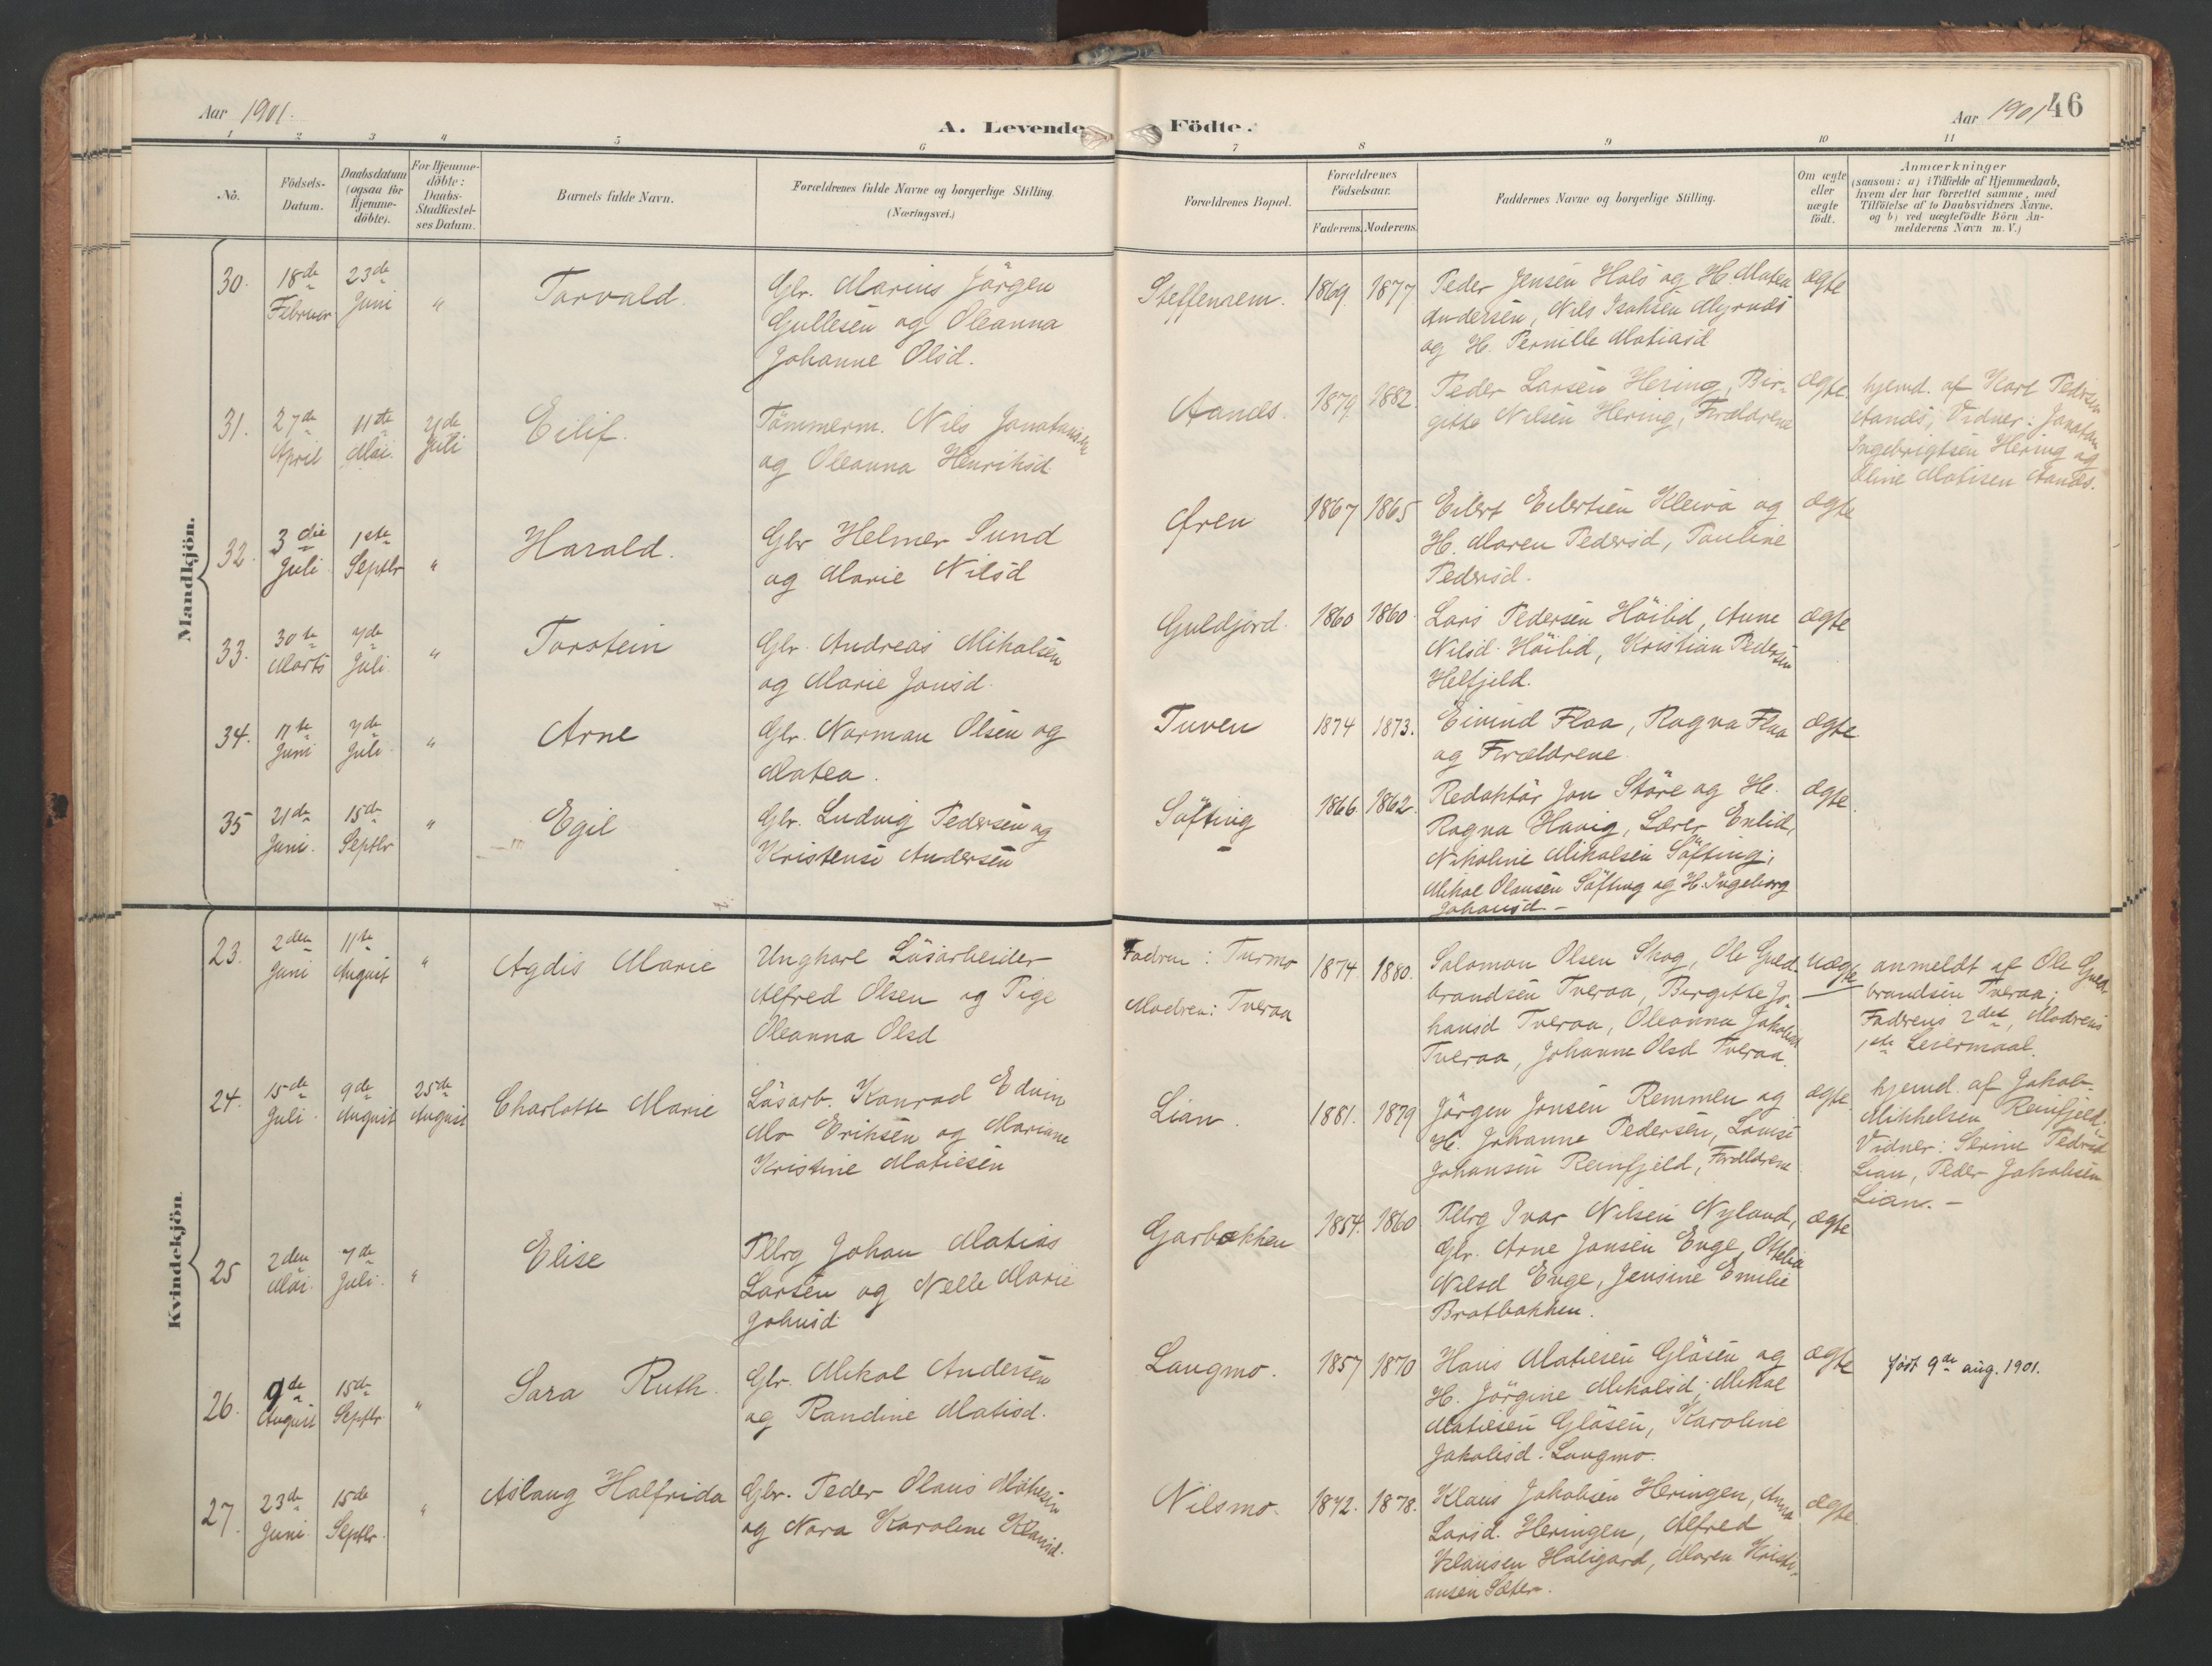 Aar 1901.
A. Levende Födte.
Aar 1901 46
1 2 3 4 5 6 7 8 9 10 11
No.
Födsels-
Datum.
Daabsdatum
(ogsaa for
Hjemme-
döbte).
For Hjemme-
döbte:
Daabs-
Stadfæstel-
ses Datum.
Barnets fulde Navn.
Forældrenes fulde Navne og borgerlige Stilling.
(Næringsvei.)
Forældrenes Bopæl.
Forældrenes
Födselsaar.
Faderens. Moderens.
Faddernes Navne og borgerlige Stilling.
Om ægte
eller
uægte
födt.
Anmærkninger
(saasom: a) i Tilfælde af Hjemmedaab,
hvem der har forrettet samme, med
Tilföielse af to Daabsvidners Navne,
og b) ved uægtefödte Börn An-
melderens Navn m. V.)
Mandkjön.
30.
18de
Februar
23de
Juni
"
Torvald.
Gbr. Marius Jörgen
Gullesen og Oleanna
Johanne Olsd.
Steffenrem.
1869. 1877
Peder Jensen Hals og H. Matea
Andersen, Nils Isaksen Myrnes
og H. Pernille Matiasd
ægte
31.
27de
April
11te
Mai.
7de
Juli
Eilif.
Tömmerm. Nils Jonatansen
og Oleanna Henriksd.
Aands.
1879. 1882.
Peder Larsen Hering, Bir-
gitte Nilsen Hering, Forældrene
ægte.
hjemd. af Karl Pedersen
Aands, Vidner: Jonatan
Ingebrigtsen Hering og
Oline Matisen Aands.
32.
3die
Juli
1ste
Septbr
"
Harald.
Gbr Helmer Sund
og Marie Nilsd
Øren
1867 1865
Eilert Eilertsen Kleiva og
H. Maren Pedersd, Pauline
Pedersd.
ægte
33.
30te
Marts
7de
Juli
"
Torstein
Gbr. Andreas Mikalsen
og Marie Jonsd.
Guldfjord.
1860 1860.
Lars Pedersen Höilid, Anne
Nilsd. Höilid, Kristian Pedersen
Helfjeld.
ægte
34.
11te
Juni
7de
Juli
"
Arne
Gbr. Norman Olsen og
Matea.
Tuven
1874 1873.
Eivind Flaa, Ragna Flaa
og Forældrene.
ægte
35
21de
Juni.
15de
Septbr
"
Egil
Gbr. Ludvig Pedersen og
Kristense Andersen
Söfting
1866 1862.
Redaktör Jon Störe og H.
Ragna Havig, Lærer Enlid,
Nikoline Mikalsen Söfting,
Mikal Olausen Söfting og H. Ingeborg
Johansd –
ægte.
Kvindekjön.
23.
2den
Juni
11te
August
"
Agdis Marie
Ungkarl Lösarbeider
Alfred Olsen og Pige
Oleanna Olsd
Fadren: Turmo
Modren: Tveraa
1874 1880.
Salomon Olsen Skog, Ole Guld-
brandsen Tveraa, Birgitte Jo-
hansd Tveraa, Oleanna Jakobsd
Tveraa, Johanne Olsd Tveraa.
uægte
anmeldt af Ole Guld-
brandsen Tveraa;
Fadrens 2det, Modrens
1ste Leiermaal.
24.
15de
Juli
9de
August
25de
August
Charlotte Marie
Lösarb. Konrad Edvin
Mo Eriksen og Mariane
Kristine Matiesen
Lian.
1881. 1879
Jörgen Jonsen Remmen og
H. Johanna Pedersen, Louise
Johansen Reinfjeld, Forældrene
ægte
hjemd. af Jakob
Mikkelsen Reinfjeld.
Vidner: Serine Pedersd
Lian, Peder Jakobsen
Lian. –
25
2den
Mai
7de
Juli.
"
Elise
Johan Matias
Larsen og Nelle Marie
Johnsd
Garbakken
1854. 1860
Ivar Nilsen Nyland,
Gbr. Arne Jonsen Enge, Ottelia
Nilsd Enge, Jensine Emilie
Bratbakken.
ægte
26.
9de
August
15de
Septbr
"
Sara Ruth.
Gbr. Mikal Andersen
og Randine Matisd.
Langmo.
1857 1870
Hans Matiesen Glösen og
H. Jörgine Mikalsd, Mikal
Matiesen Glösen, Karoline
Jakobsd. Langmo.
ægte
født 9de aug. 1901.
27.
23de
Juni
15de
Septbr.
"
Aslaug Halfrida
Gbr. Peder Olaus Matiesen
og Nora Karoline Klausd.
Nilsmo.
1872. 1878.
Klaus Jakobsen Heringen, Anna
Larsd. Heringen, Alfred
Klausen Haligard, Maren Kristi-
ansen Sæter.
ægte.